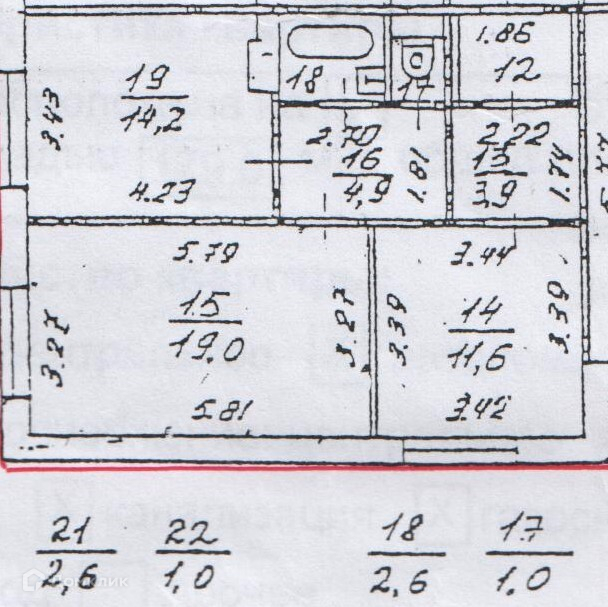 1.86
19
18
17
12
14,2
3.43
2.70
2.22
16
13
4,9
1.81
3,9
1.74
4.23
5.79
3.44
15
14
19.0
11,6
3.27
3.27
3.39
3.39
5.81
3.42
21 22 18 17
2,6 1.0 2,6 1.0
Домклик